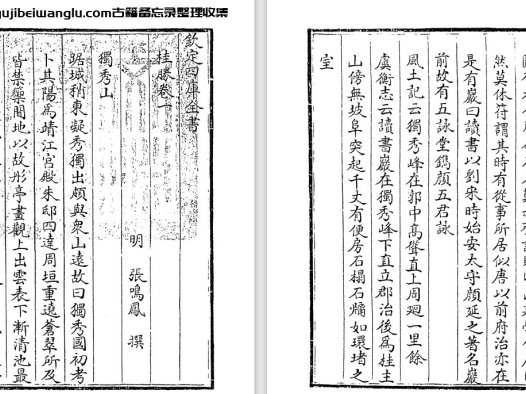 gujibeiwanglu.com古籍备忘录整理收集
欽定四庫全書
桂勝卷一
明 張鳴鳳 撰
獨秀山
踞城稍東凝秀獨出頗與衆山遠故曰獨秀國初考
卜其陽為靖江宮殿朱邸四達周垣重遶蒼翠所及
皆禁藥間地以故彤亭畫觀上出雲表下漸清池最
然莫休符謂其時有從事所居似唐以前府治亦在
是有巖曰讀書以劉宋時始安太守顔延之著名巖
前故有五詠堂鐫顔五君詠
風土記云獨秀峰在郭中髙聳直上周迴一里餘
虞衡志云讀書巖在獨秀峰下直立郡治後為桂主
山傍無坡阜突起千丈有便房石榻石牖如環堵之
室